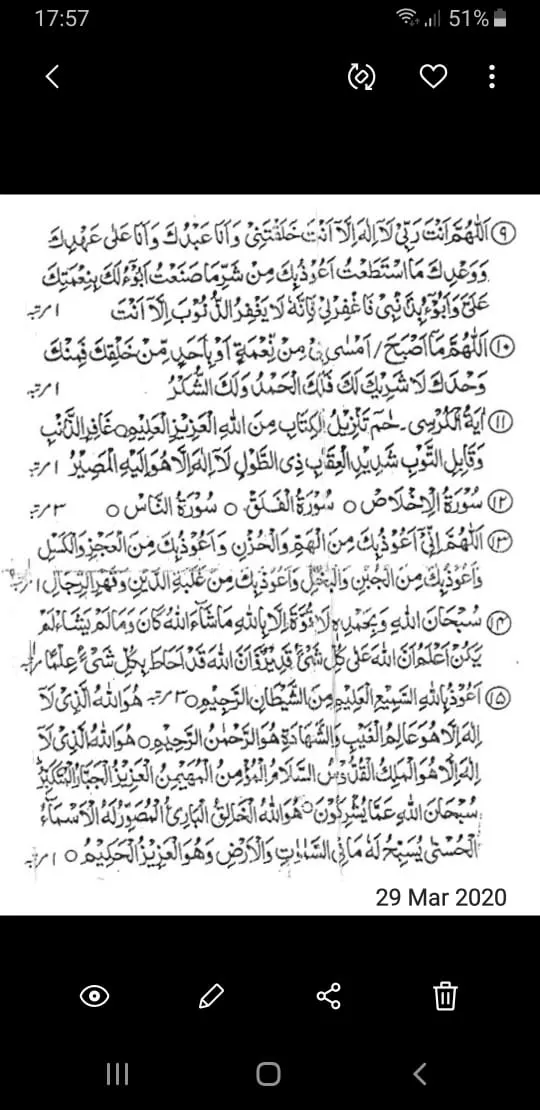 17:57 51%
۹ اَللّٰهُمَّ اَنْتَ رَبِّيْ لَآ اِلٰهَ اِلَّا اَنْتَ خَلَقْتَنِيْ وَاَنَا عَبْدُكَ وَاَنَا عَلٰى عَهْدِكَ
وَوَعْدِكَ مَا اسْتَطَعْتُ اَعُوْذُبِكَ مِنْ شَرِّ مَا صَنَعْتُ اَبُوْءُ لَكَ بِنِعْمَتِكَ
عَلَيَّ وَاَبُوْءُ بِذَنْبِيْ فَاغْفِرْلِيْ فَاِنَّهٗ لَا يَغْفِرُ الذُّنُوْبَ اِلَّا اَنْتَ ۱ مرتبہ
۱۰ اَللّٰهُمَّ مَآ اَصْبَحَ / اَمْسٰى بِيْ مِنْ نِعْمَةٍ اَوْ بِاَحَدٍ مِّنْ خَلْقِكَ فَمِنْكَ
وَحْدَكَ لَا شَرِيْكَ لَكَ فَلَكَ الْحَمْدُ وَلَكَ الشُّكْرُ ۱ مرتبہ
۱۱ اٰيَةُ الْكُرْسِى ۔ حٰمٓ تَنْزِيْلُ الْكِتَابِ مِنَ اللهِ الْعَزِيْزِ الْعَلِيْمِ ○ غَافِرِ الذَّنْبِ
وَقَابِلِ التَّوْبِ شَدِيْدِ الْعِقَابِ ذِى الطَّوْلِ لَآ اِلٰهَ اِلَّا هُوَ اِلَيْهِ الْمَصِيْرُ ۱ مرتبہ
۱۲ سُوْرَةُ الْاِخْلَاصْ ○ سُوْرَةُ الْفَلَقْ ○ سُوْرَةُ النَّاسْ ○ ۳ مرتبہ
۱۳ اَللّٰهُمَّ اِنِّيْ اَعُوْذُبِكَ مِنَ الْهَمِّ وَالْحُزْنِ وَاَعُوْذُبِكَ مِنَ الْعَجْزِ وَالْكَسَلِ
وَاَعُوْذُبِكَ مِنَ الْجُبْنِ وَالْبُخْلِ وَاَعُوْذُبِكَ مِنْ غَلَبَةِ الدَّيْنِ وَقَهْرِ الرِّجَالِ ۱ مرتبہ
۱۴ سُبْحَانَ اللهِ وَبِحَمْدِهٖ لَا قُوَّةَ اِلَّا بِاللهِ مَا شَآءَ اللهُ كَانَ وَمَا لَمْ يَشَاءْ لَمْ
يَكُنْ اَعْلَمُ اَنَّ اللهَ عَلٰى كُلِّ شَيْءٍ قَدِيْرٌ وَّاَنَّ اللهَ قَدْ اَحَاطَ بِكُلِّ شَيْءٍ عِلْمًا
۱۵ اَعُوْذُ بِاللهِ السَّمِيْعِ الْعَلِيْمِ مِنَ الشَّيْطَانِ الرَّجِيْمِ ○ ۳ مرتبہ هُوَ اللهُ الَّذِىْ لَآ
اِلٰهَ اِلَّا هُوَ عَالِمُ الْغَيْبِ وَالشَّهَادَةِ هُوَ الرَّحْمٰنُ الرَّحِيْمُ ○ هُوَ اللهُ الَّذِىْ لَآ
اِلٰهَ اِلَّا هُوَ الْمَلِكُ الْقُدُّوْسُ السَّلَامُ الْمُؤْمِنُ الْمُهَيْمِنُ الْعَزِيْزُ الْجَبَّارُ الْمُتَكَبِّرُ
سُبْحَانَ اللهِ عَمَّا يُشْرِكُوْنَ ○ هُوَ اللهُ الْخَالِقُ الْبَارِئُ الْمُصَوِّرُ لَهُ الْاَسْمَآءُ
الْحُسْنٰى يُسَبِّحُ لَهٗ مَا فِى السَّمٰوٰتِ وَالْاَرْضِ وَهُوَ الْعَزِيْزُ الْحَكِيْمُ ○ ۱ مرتبہ
29 Mar 2020